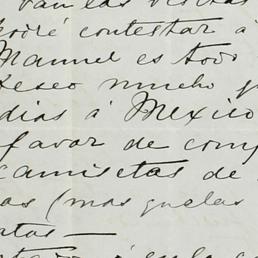 van las visitas
podré contestar á
Manuel es todo
Deseo mucho q
dias á Mexico
favor de com
camisetas de
as (mas que las
tas—